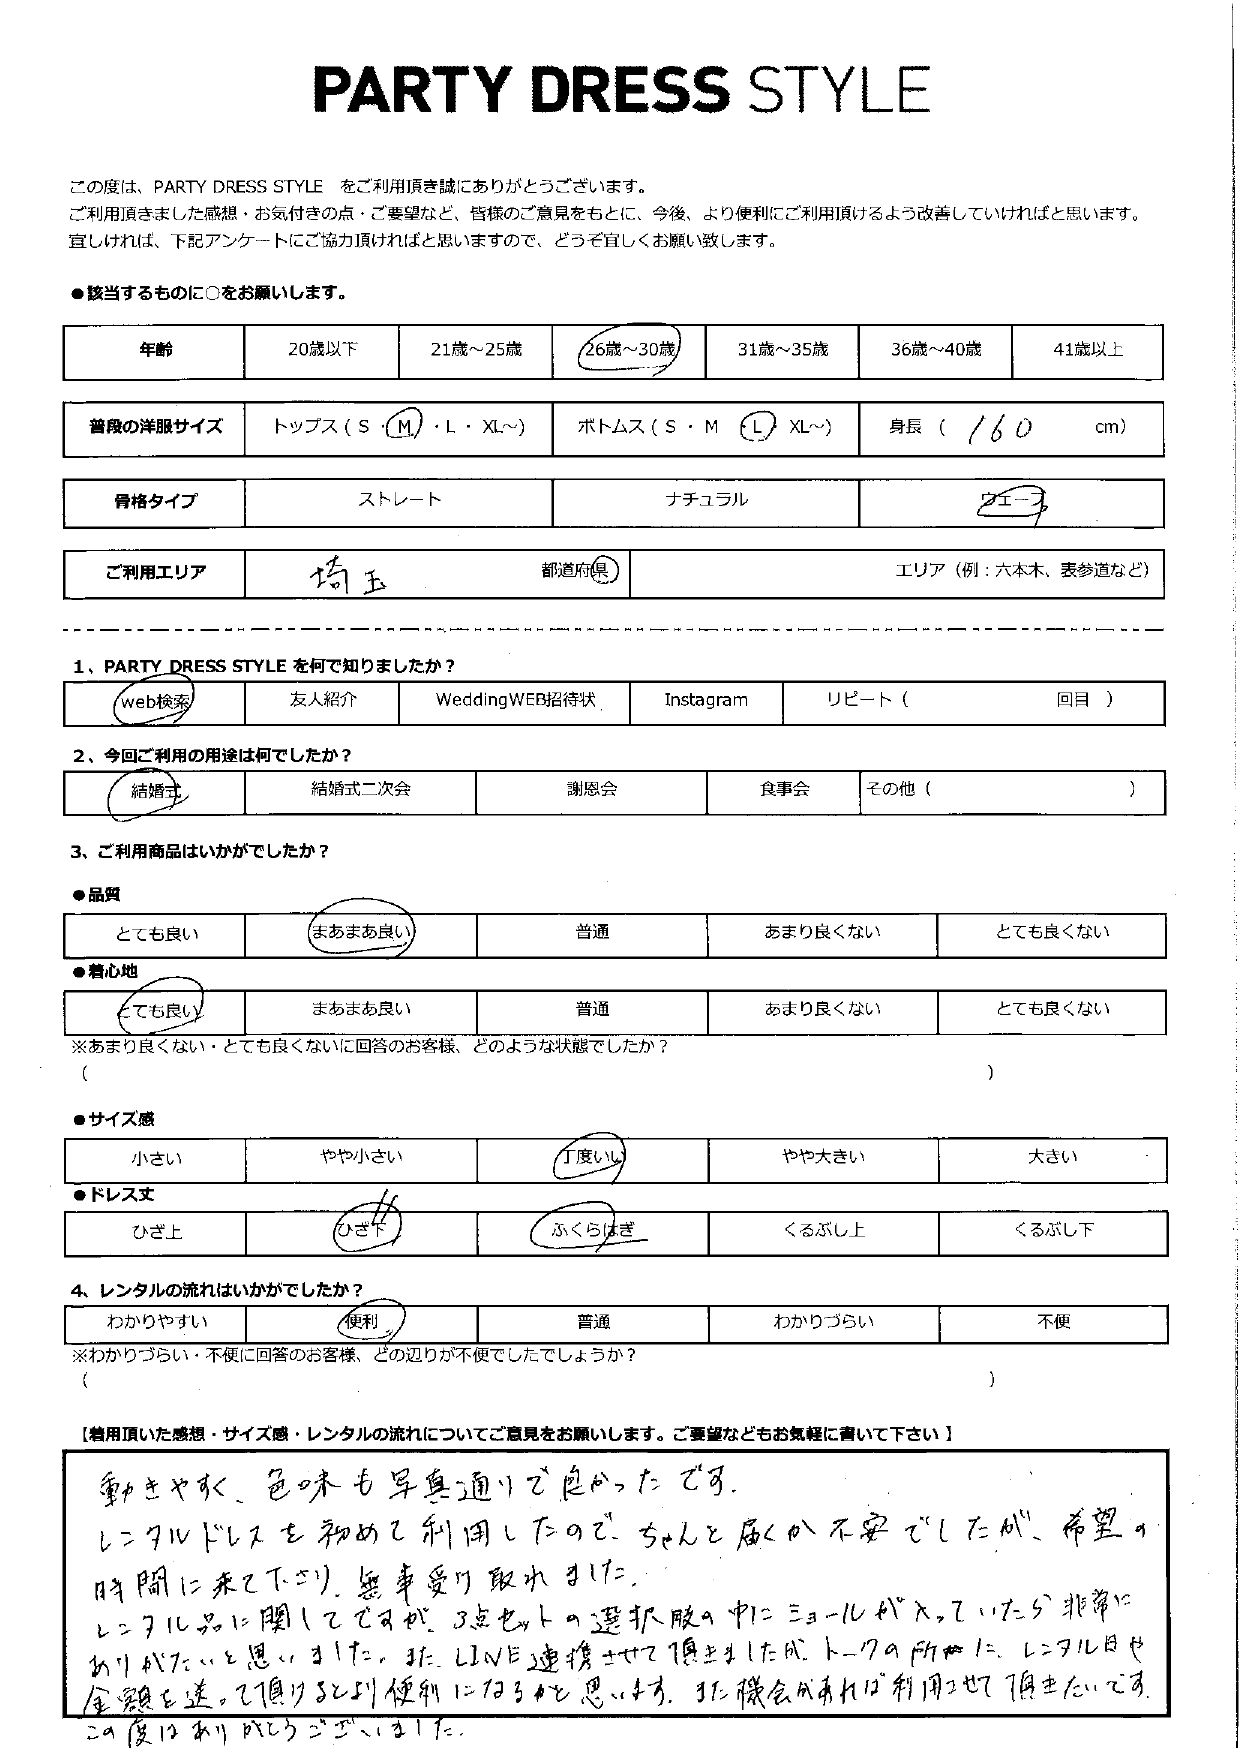 PARTY DRESS STYLE
この度は、PARTY DRESS STYLE をご利用頂き誠にありがとうございます。
ご利用頂きました感想・お気付きの点・ご要望など、皆様のご意見をもとに、今後、より便利にご利用頂けるよう改善していければと思います。
宜しければ、下記アンケートにご協力頂ければと思いますので、どうぞ宜しくお願い致します。
●該当するものに○をお願いします。
年齢 20歳以下 21歳～25歳 26歳～30歳 31歳～35歳 36歳～40歳 41歳以上
普段の洋服サイズ トップス ( S ・ M ・ L ・ XL～) ボトムス ( S ・ M L XL～) 身長 ( 160 cm)
骨格タイプ ストレート ナチュラル ウェーブ
ご利用エリア 埼玉 都道府県 エリア（例：六本木、表参道など）
1、PARTY DRESS STYLE を何で知りましたか？
web検索 友人紹介 WeddingWEB招待状 Instagram リピート ( 回目 )
2、今回ご利用の用途は何でしたか？
結婚式 結婚式二次会 謝恩会 食事会 その他 ( )
3、ご利用商品はいかがでしたか？
●品質
とても良い まあまあ良い 普通 あまり良くない とても良くない
●着心地
とても良い まあまあ良い 普通 あまり良くない とても良くない
※あまり良くない・とても良くないに回答のお客様、どのような状態でしたか？
( )
●サイズ感
小さい やや小さい 丁度いい やや大きい 大きい
●ドレス丈
ひざ上 ひざ下 ふくらはぎ くるぶし上 くるぶし下
4、レンタルの流れはいかがでしたか？
わかりやすい 便利 普通 わかりづらい 不便
※わかりづらい・不便に回答のお客様、どの辺りが不便でしたでしょうか？
( )
【着用頂いた感想・サイズ感・レンタルの流れについてご意見をお願いします。ご要望などもお気軽に書いて下さい 】
動きやすく、色味も写真通りで良かったです。
レンタルドレスを初めて利用したので、ちゃんと届くか不安でしたが、希望の
時間に来て下さり、無事受け取れました。
レンタル品に関してですが、3点セットの選択肢の中にショールが入っていたら非常に
ありがたいと思いました。また、LINE連携させて頂きましたが、トークの所に、レンタル日や
金額を送って頂けるとより便利になるかと思います。また機会があれば利用させて頂きたいです。
この度はありがとうございました。